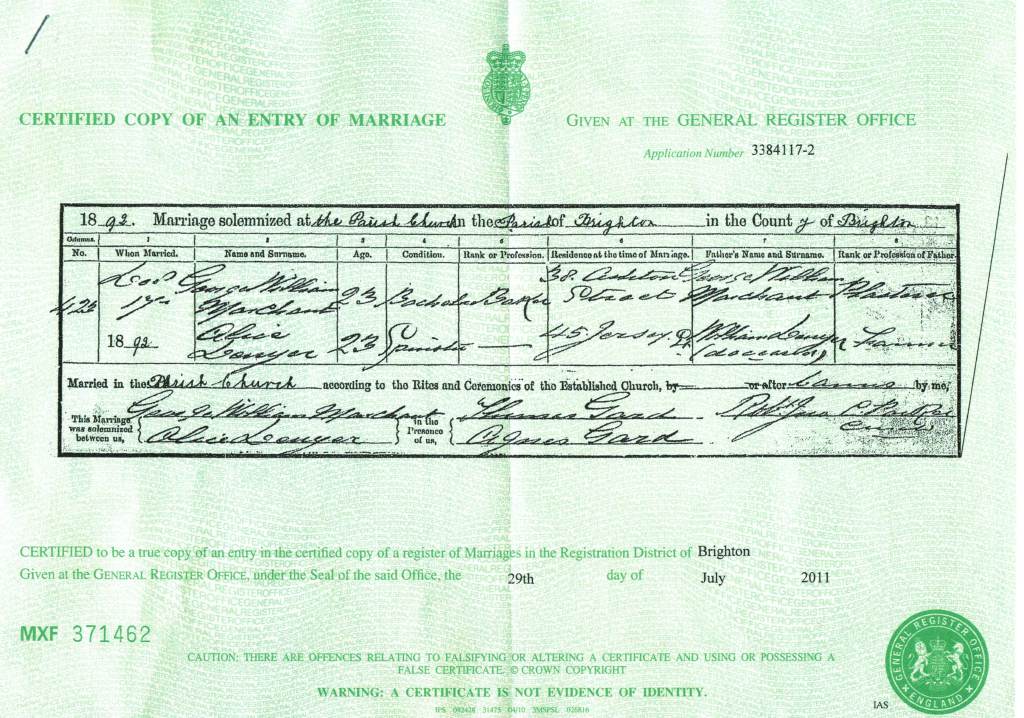 CERTIFIED COPY OF AN ENTRY OF MARRIAGE
GIVEN AT THE GENERAL REGISTER OFFICE
Application Number 3384117-2
18 92. Marriage solemnized at the Parish Church in the Parish of Brighton in the County of Brighton
Columns. 1 2 3 4 5 6 7 8
No. When Married. Name and Surname. Age. Condition. Rank or Profession. Residence at the time of Marriage. Father's Name and Surname. Rank or Profession of Father.
George William 38. George William
17 Marchant 23 Bachelor Baker Street Marchant
18 92 Alice 23 Spinster — 45 Jersey St William
(deceased)
Married in the Parish Church according to the Rites and Ceremonies of the Established Church, by — or after banns by me,
This Marriage was solemnized between us, George William Marchant
Alice
in the Presence of us, Thomas Gard
Agnes Gard
CERTIFIED to be a true copy of an entry in the certified copy of a register of Marriages in the Registration District of Brighton
Given at the GENERAL REGISTER OFFICE, under the Seal of the said Office, the 29th day of July 2011
MXF 371462
CAUTION: THERE ARE OFFENCES RELATING TO FALSIFYING OR ALTERING A CERTIFICATE AND USING OR POSSESSING A
FALSE CERTIFICATE. © CROWN COPYRIGHT
WARNING: A CERTIFICATE IS NOT EVIDENCE OF IDENTITY.
IAS
GENERAL REGISTER OFFICE
ENGLAND